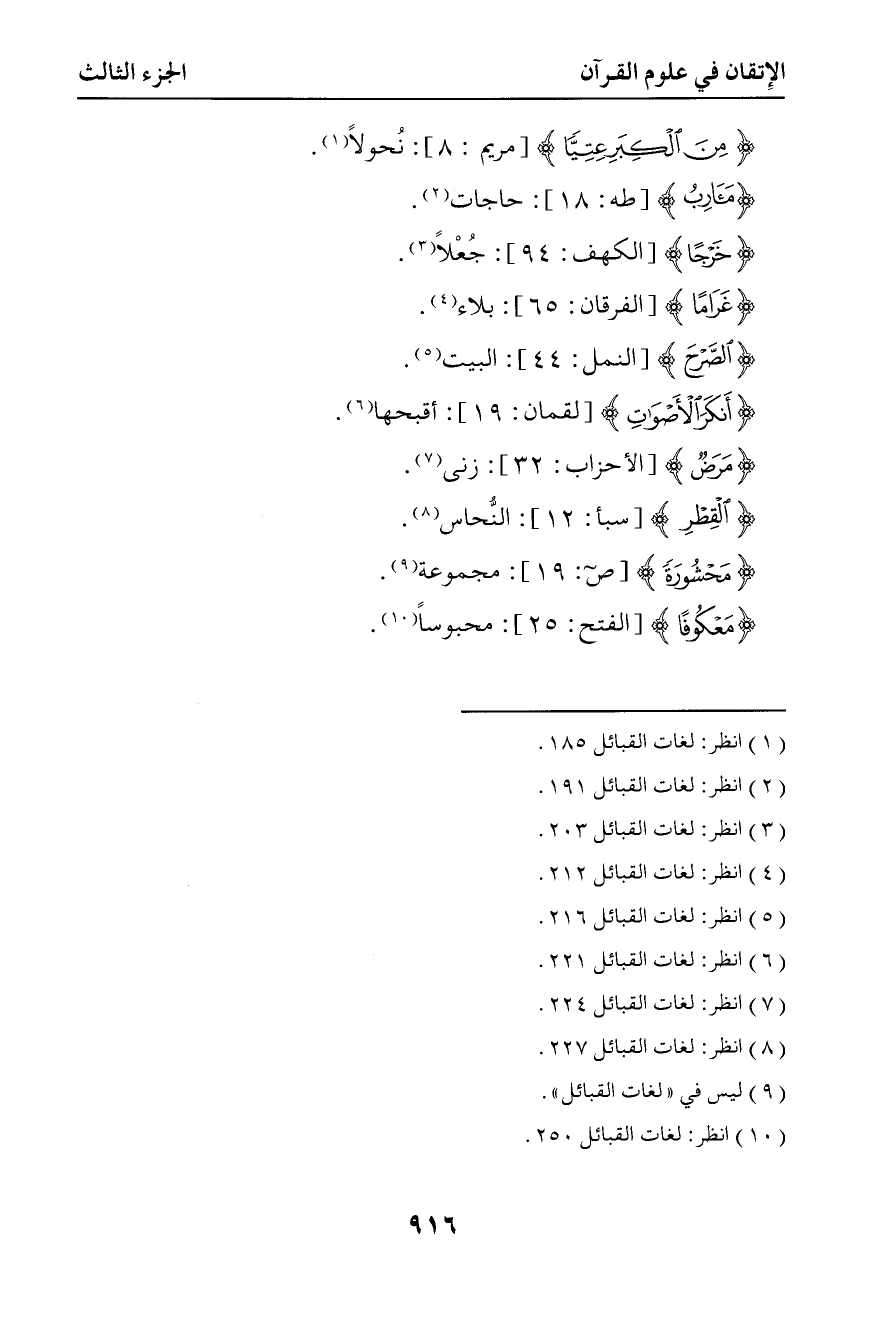 الإتقان في علوم القرآن الجزء الثالث
﴿ مِنَ ٱلْكِبَرِ عِتِيًّا ﴾ [ مريم : ٨ ] : نُحولاً(١) .
﴿ مَـَٔارِبُ ﴾ [ طه : ١٨ ] : حاجات(٢) .
﴿ خَرْجًا ﴾ [ الكهف : ٩٤ ] : جُعْلاً(٣) .
﴿ غَرَامًا ﴾ [ الفرقان : ٦٥ ] : بلاء(٤) .
﴿ ٱلصَّرْحَ ﴾ [ النمل : ٤٤ ] : البيت(٥) .
﴿ أَنكَرَ ٱلْأَصْوَٰتِ ﴾ [ لقمان : ١٩ ] : أقبحها(٦) .
﴿ مَرَضٌ ﴾ [ الأحزاب : ٣٢ ] : زنى(٧) .
﴿ ٱلْقِطْرِ ﴾ [ سبأ : ١٢ ] : النُّحاس(٨) .
﴿ مَحْشُورَةً ﴾ [ صٓ : ١٩ ] : مجموعة(٩) .
﴿ مَعْكُوفًا ﴾ [ الفتح : ٢٥ ] : محبوساً(١٠) .
( ١ ) انظر : لغات القبائل ١٨٥ .
( ٢ ) انظر : لغات القبائل ١٩١ .
( ٣ ) انظر : لغات القبائل ٢٠٣ .
( ٤ ) انظر : لغات القبائل ٢١٢ .
( ٥ ) انظر : لغات القبائل ٢١٦ .
( ٦ ) انظر : لغات القبائل ٢٢١ .
( ٧ ) انظر : لغات القبائل ٢٢٤ .
( ٨ ) انظر : لغات القبائل ٢٢٧ .
( ٩ ) ليس في «لغات القبائل» .
( ١٠ ) انظر : لغات القبائل ٢٥٠ .
٩١٦